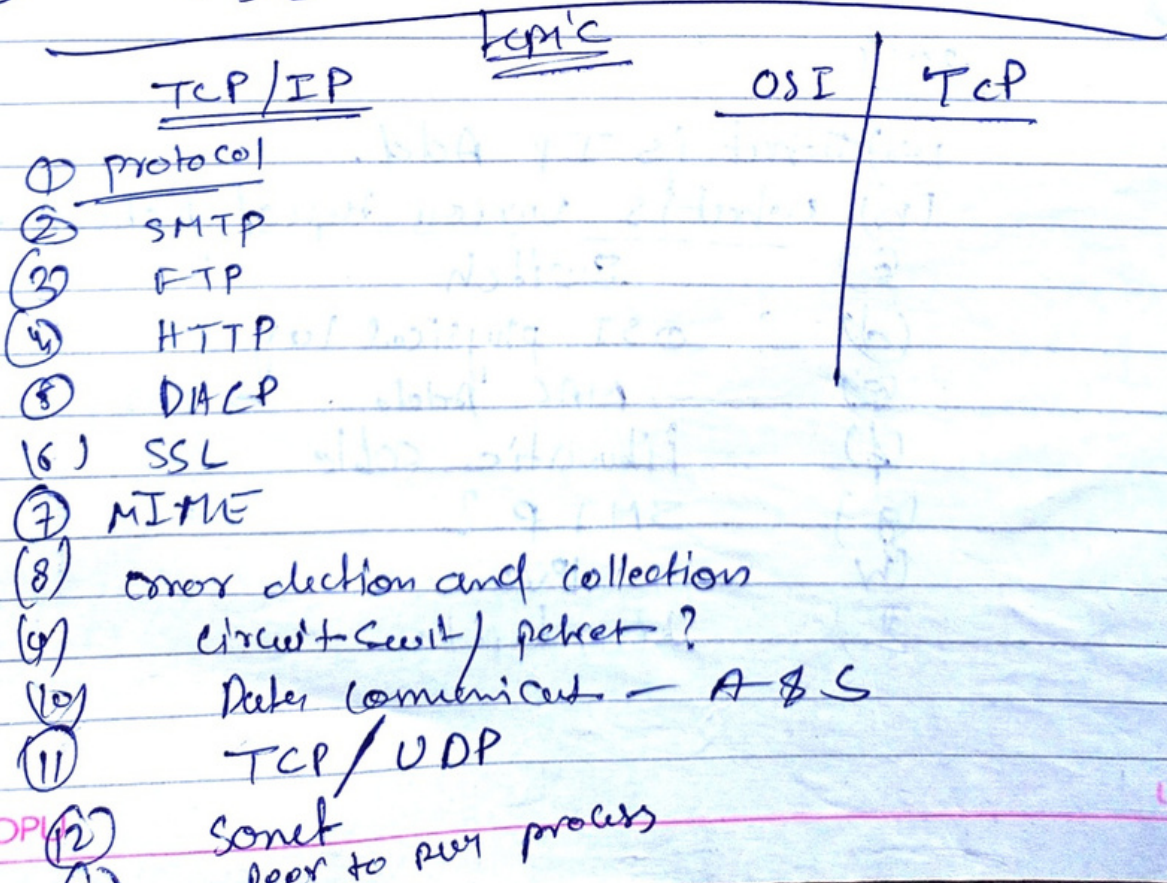 Topic
TCP/IP
OSI | TCP
① protocol
② SMTP
③ FTP
④ HTTP
⑤ DHCP
(6) SSL
⑦ MIME
(8) error dection and collection
(9) circuit swit/ packet ?
(10) Data comunicat — A & S
⑪ TCP/UDP
⑫ Sonet
peer to peer process